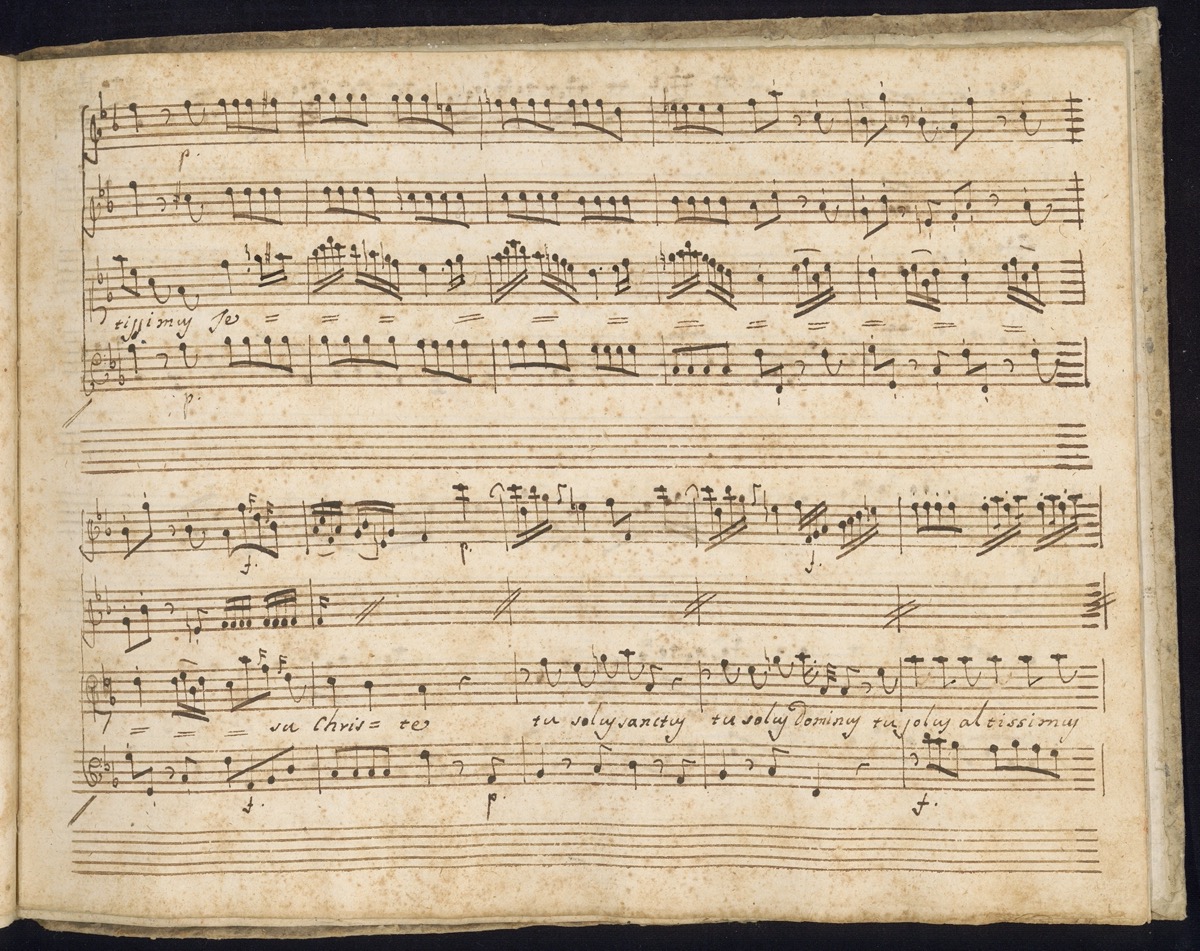 p.
tissimus Je = = = = = = = = =
p.
f. p. f.
= = = su Chris= te tu solus sanctus tu solus Dominus tu solus altissimus
f. p. f.